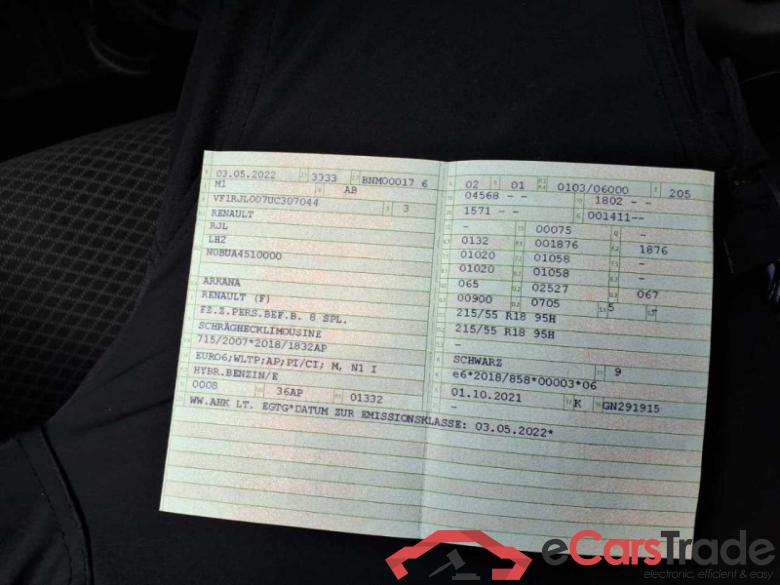 03.05.2022 3333 BNM00017 6
M1 AB
VF1RJL007UC307044 3
RENAULT
RJL
LH2
N0BUA4510000
ARKANA
RENAULT (F)
FZ.Z.PERS.BEF.B. 8 SPL.
SCHRÄGHECKLIMOUSINE
715/2007*2018/1832AP
EURO6;WLTP;AP;PI/CI; M, N1 I
HYBR.BENZIN/E
0008 36AP 01332
WW.AHK LT. EGTG*DATUM ZUR EMISSIONSKLASSE: 03.05.2022*
02 01 0103/06000 205
04568 - - 1802 - -
1571 - - 001411--
- 00075 -
0132 001876 1876
01020 01058 -
01020 01058 -
065 02527 067
00900 0705 5
215/55 R18 95H
215/55 R18 95H
-
SCHWARZ 9
e6*2018/858*00003*06
01.10.2021 K GN291915
-
eCarsTrade
electronic, efficient & easy